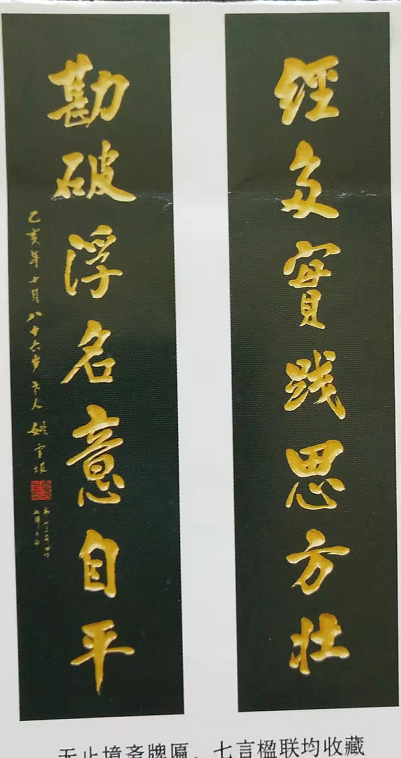 經多實践思方壯
勘破浮名意自平
己亥年十月八十六岁老人姚
无止境斋牌匾、七言楹联均收藏